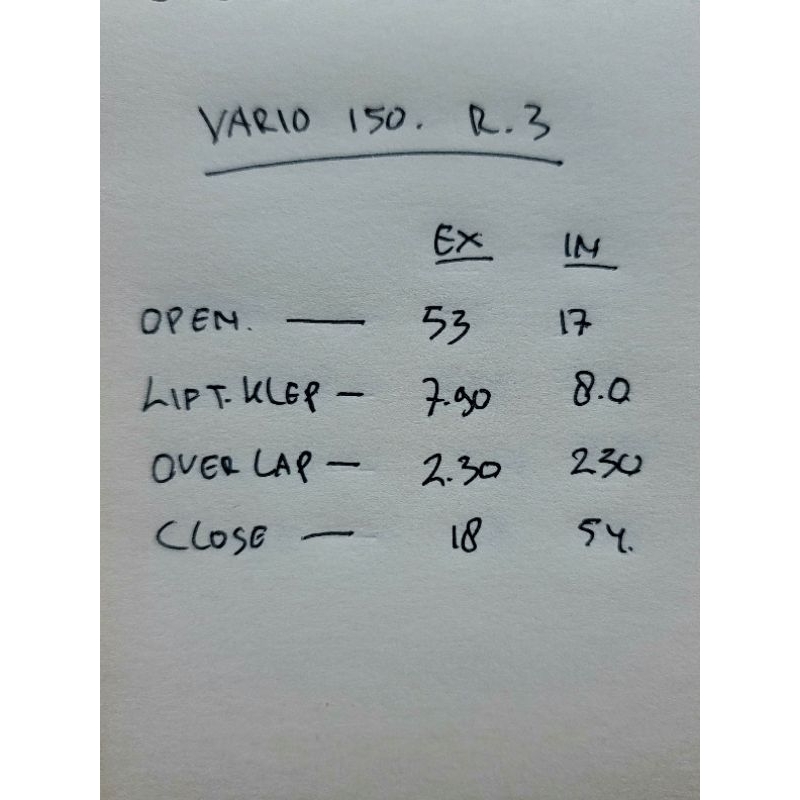 VARIO 150. R.3
EX IN
OPEN. — 53 17
LIPT. KLEP — 7.90 8.0
OVER LAP — 2.30 230
CLOSE — 18 54.